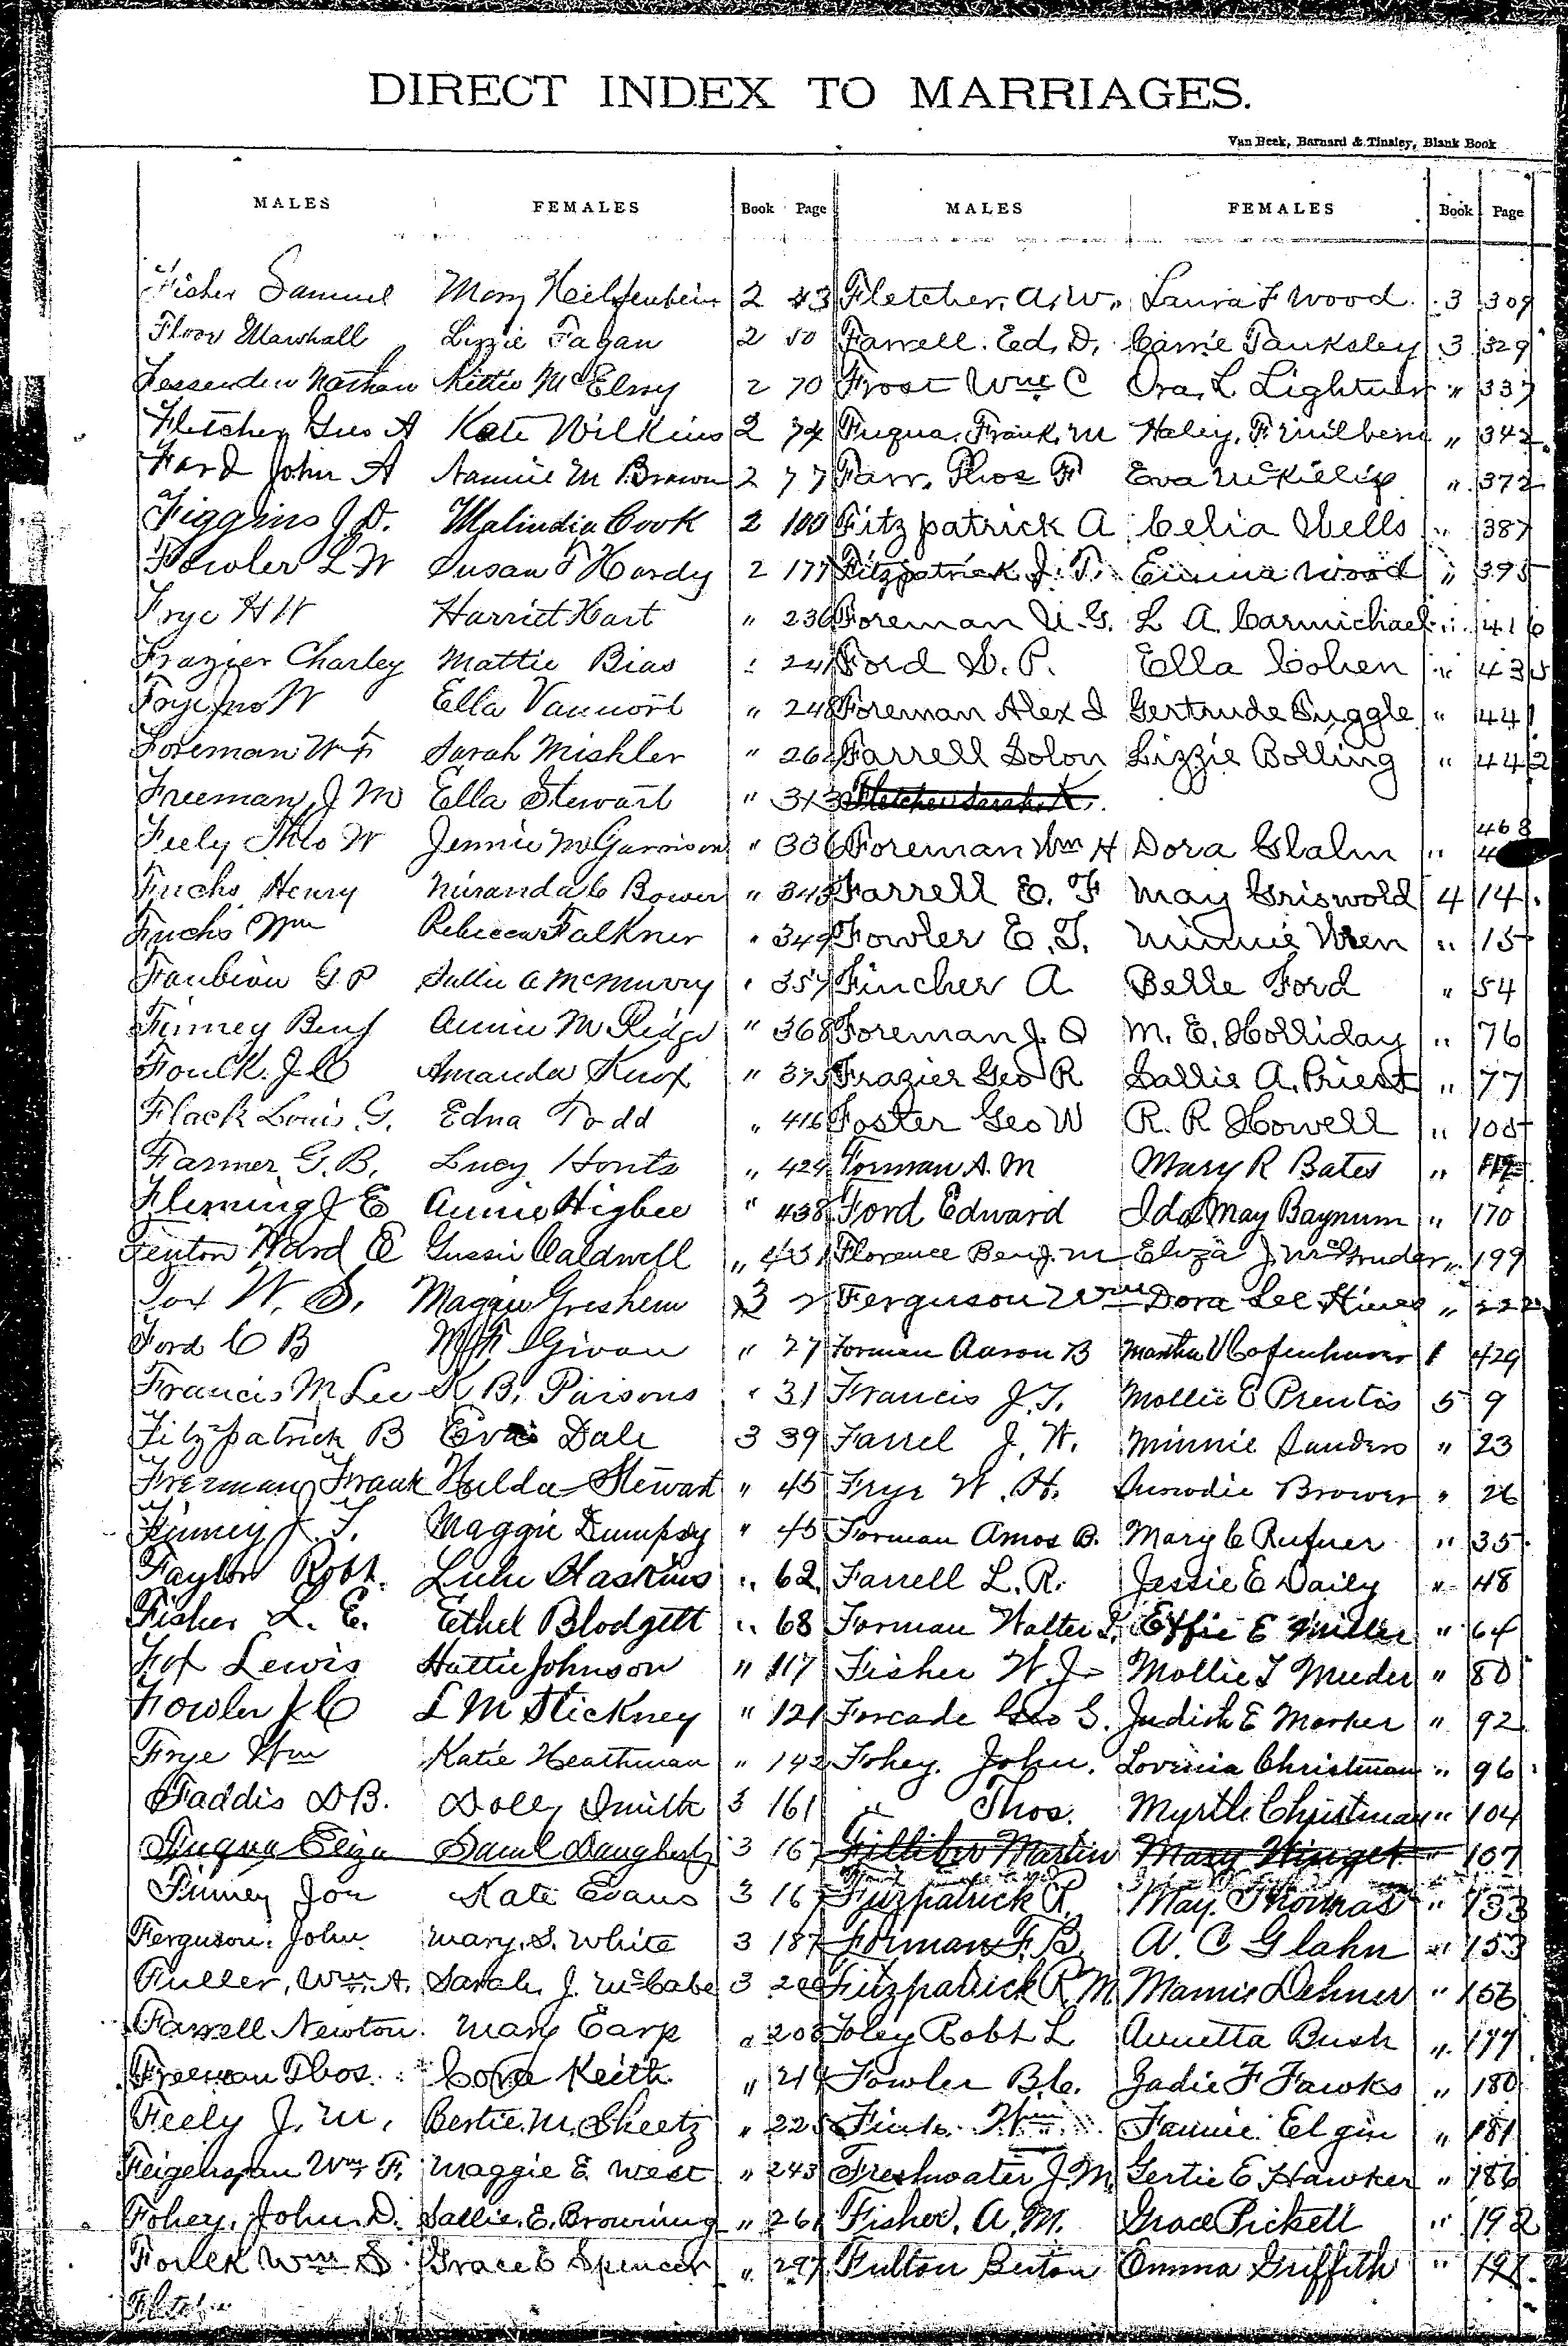 DIRECT INDEX TO MARRIAGES.
Van Beek, Barnard & Tinsley, Blank Book
MALES FEMALES Book Page MALES FEMALES Book Page
Fisher Samuel Mary 2 43 Fletcher, A. W. Laura F Wood 3 309
Floor Marshall Lizzie Fagan 2 50 Farrell. Ed. D. Carrie Tanksley 3 329
Fessenden Nathan Kittie McElroy 2 70 Frost Wm C Ora L Lightner " 337
Fletcher Geo A Kate Wilkins 2 74 Fuqua, Frank, M Haley, " 342
Ford John A Nannie M Brown 2 77 Farr, Thos F Eva McKillip " 372
Figgins J. D. Malindia Cook 2 100 Fitzpatrick A Celia Wells " 387
Fowler L W Susan F Hardy 2 177 Fitzpatrick J. T. Emma Wood " 395
Frye H W Harriet Hart " 236 Foreman U. G. L A Carmichael " 416
Frazier Charley Mattie Bias " 241 Ford S. P. Ella Cohen " 435
Frye Jno W Ella Vannort " 248 Foreman Alex Gertrude Suggle " 441
Foreman W F Sarah Mishler " 262 Farrell Solon Lizzie Bolling " 442
Freeman J M Ella Stewart " 313 Fletcher Sarah K.
468
Feely Theo W Jennie M Garrison " 336 Foreman Wm H Dora Glahn "
Fuchs Henry Miranda C Bower " 343 Farrell E. F May Griswold 4 14
Fuchs Wm Rebecca Falkner " 349 Fowler E. T. Minnie Wren " 15
Faubion G P Sallie A McMurry " 357 Fincher A Belle Ford " 54
Finney Benj Annie M Ridge " 368 Foreman J. O M. E. Holliday " 76
Foulk. J. C Amanda Knox " 375 Frazier Geo R Sallie A. Priest " 77
Flack Louis G. Edna Todd " 416 Foster Geo W R. R Howell " 105
Farmer G. B. Lucy Honts " 424 Forman A. M Mary R Bates "
Fleming J E Annie Higbee " 438 Ford Edward Ida May Baynum " 170
Fenton Ward E Gussie Caldwell " 451 Florence Benj. M Eliza J McGruder " 199
Fox W. S. Maggie Greshem 3 2 Ferguson Wm Dora Lee Hines " 222
Ford C B M F Givan " 27 Forman Aaron B Martha V Cofenhaver 1 429
Francis M Lee K B. Parsons " 31 Francis J. T. Mollie E Prentis 5 9
Fitzpatrick B Eva Dale 3 39 Farrel J. W. Minnie Sanders " 23
Freeman Frank Hulda Stewart " 45 Frye W. H. Brower " 26
Finney J. T. Maggie Dumpsy " 45 Forman Amos B. Mary C Rufner " 35
Faylor Robt. Lulu Haskins " 62 Farrell L. R. Jessie E Daily " 48
Fisher L. E. Ethel Blodgett " 68 Forman Walter Effie E Miller " 64
Fox Lewis Hattie Johnson " 117 Fisher W. J. Mollie T Meeder " 80
Fowler J C L M Stickney " 121 Forcade Geo G. Judith E Marker " 92
Frye Wm Katie Heathman " 142 Fohey. John. Lovinia Christman " 96
Faddis D B. Dolly Smith 3 161 " Thos. Myrtle Christman " 104
Fuqua Eliza Saml Daugherty 3 167 Filliber Martin Mary Winget " 107
Finney Jon Kate Evans 3 167 Fitzpatrick R. May Thomas " 133
Ferguson. John. Mary. S. White 3 187 Forman F. B. A. C Glahn " 153
Fuller, Wm. A. Sarah, J. McCabe 3 200 Fitzpatrick R. M. Mamie Dehner " 156
Farrell Newton. Mary Earp " 203 Foley Robt L Annetta Bush " 177
Freeman Thos. Cora Keith " 219 Fowler B. C. Zadie F Fawks " 180
Feely J. M. Bertie. M. Sheetz " 225 Wm. Fannie Elgin " 181
Feigenspan Wm F. Maggie E West " 243 Freshwater J. M. Gertie E Hawker " 186
Fohey, John. D. Sallie. E. Browning " 261 Fisher, A. M. Grace Pickett " 192
Foulk Wm S Grace E Spencer " 297 Fulton Berton Emma Griffith " 197